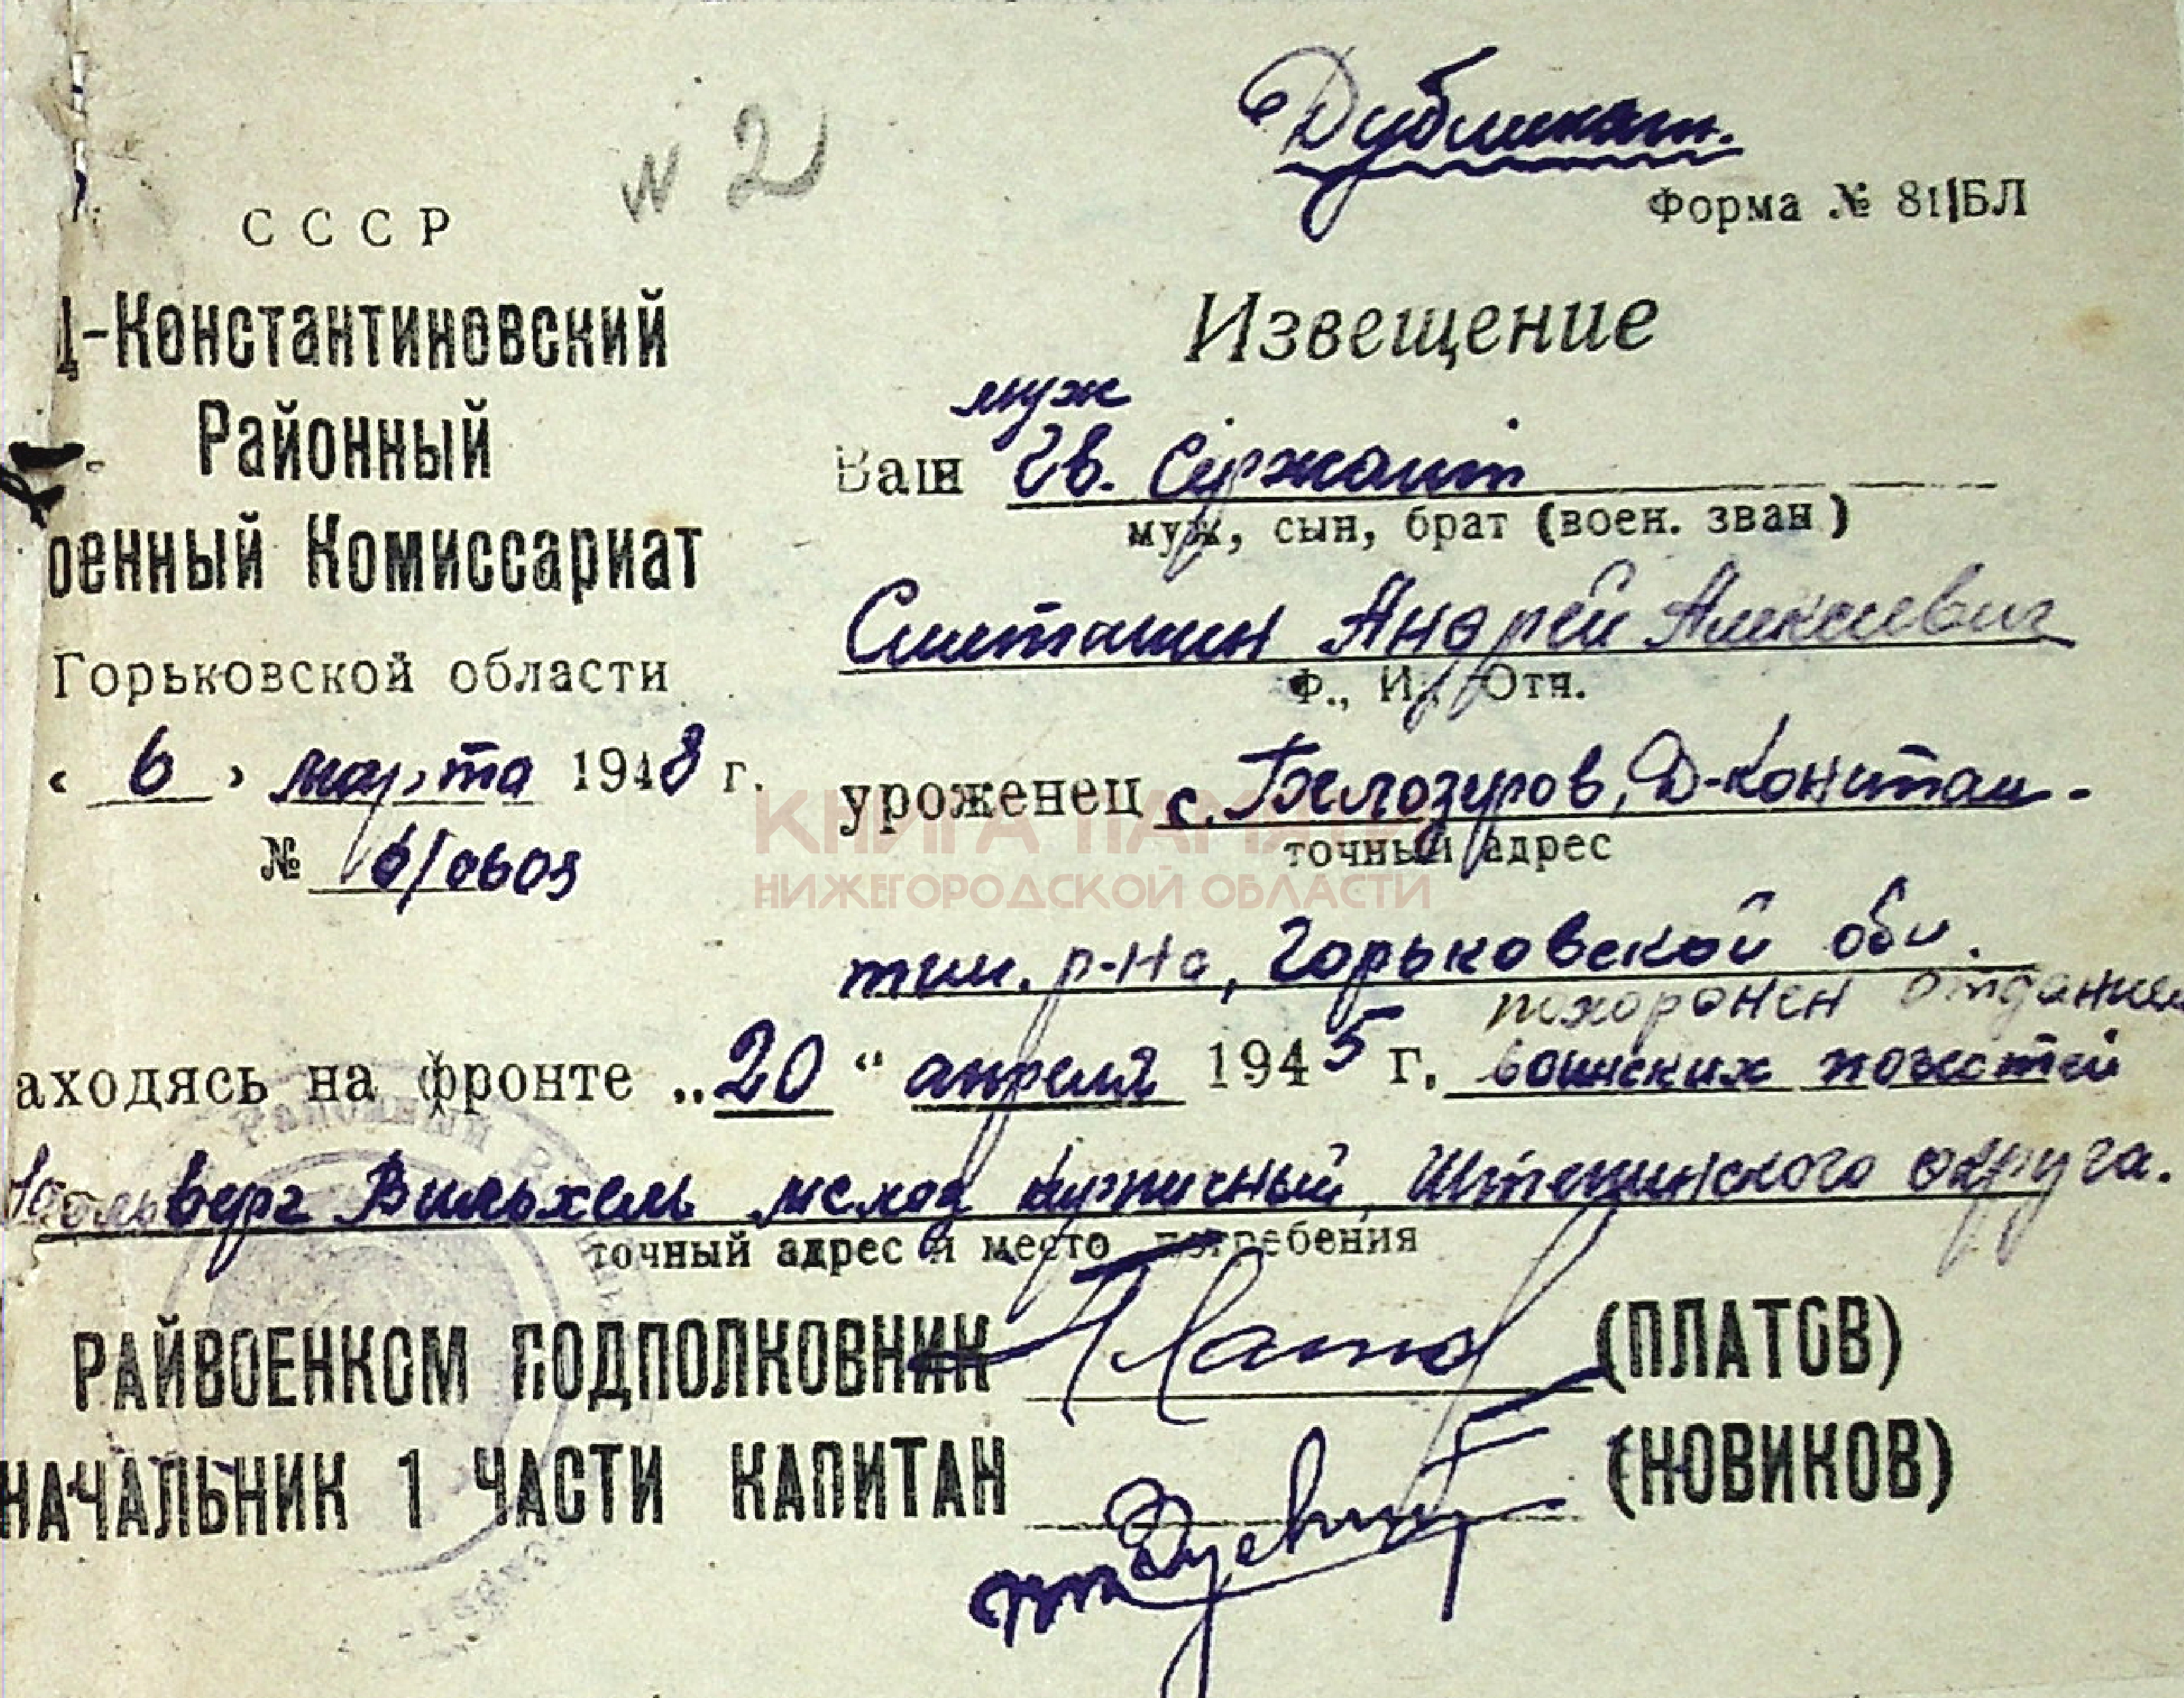 Дубликат.
N 2
Форма № 811БЛ
СССР
Д-Константиновский
Районный
оенный Комиссариат
Горьковской области
« 6 » марта 1948 г.
№ 6/0609
Извещение
муж
Ваш Гв. Сержант
муж, сын, брат (воен. зван)
Андрей Алексеевич
Ф., И., Отч.
уроженец с. Белозеров, Д-Констан-
точный адрес
тин. р-на, Горьковской обл.
похоронен отданием
аходясь на фронте „20“ апреля 1945 г. воинских почестей
Вильхель Штетинского округа.
точный адрес и место погребения
РАЙВОЕНКОМ ПОДПОЛКОВНИК (ПЛАТОВ)
НАЧАЛЬНИК 1 ЧАСТИ КАПИТАН (НОВИКОВ)
КНИГА ПАМЯТИ
НИЖЕГОРОДСКОЙ ОБЛАСТИ